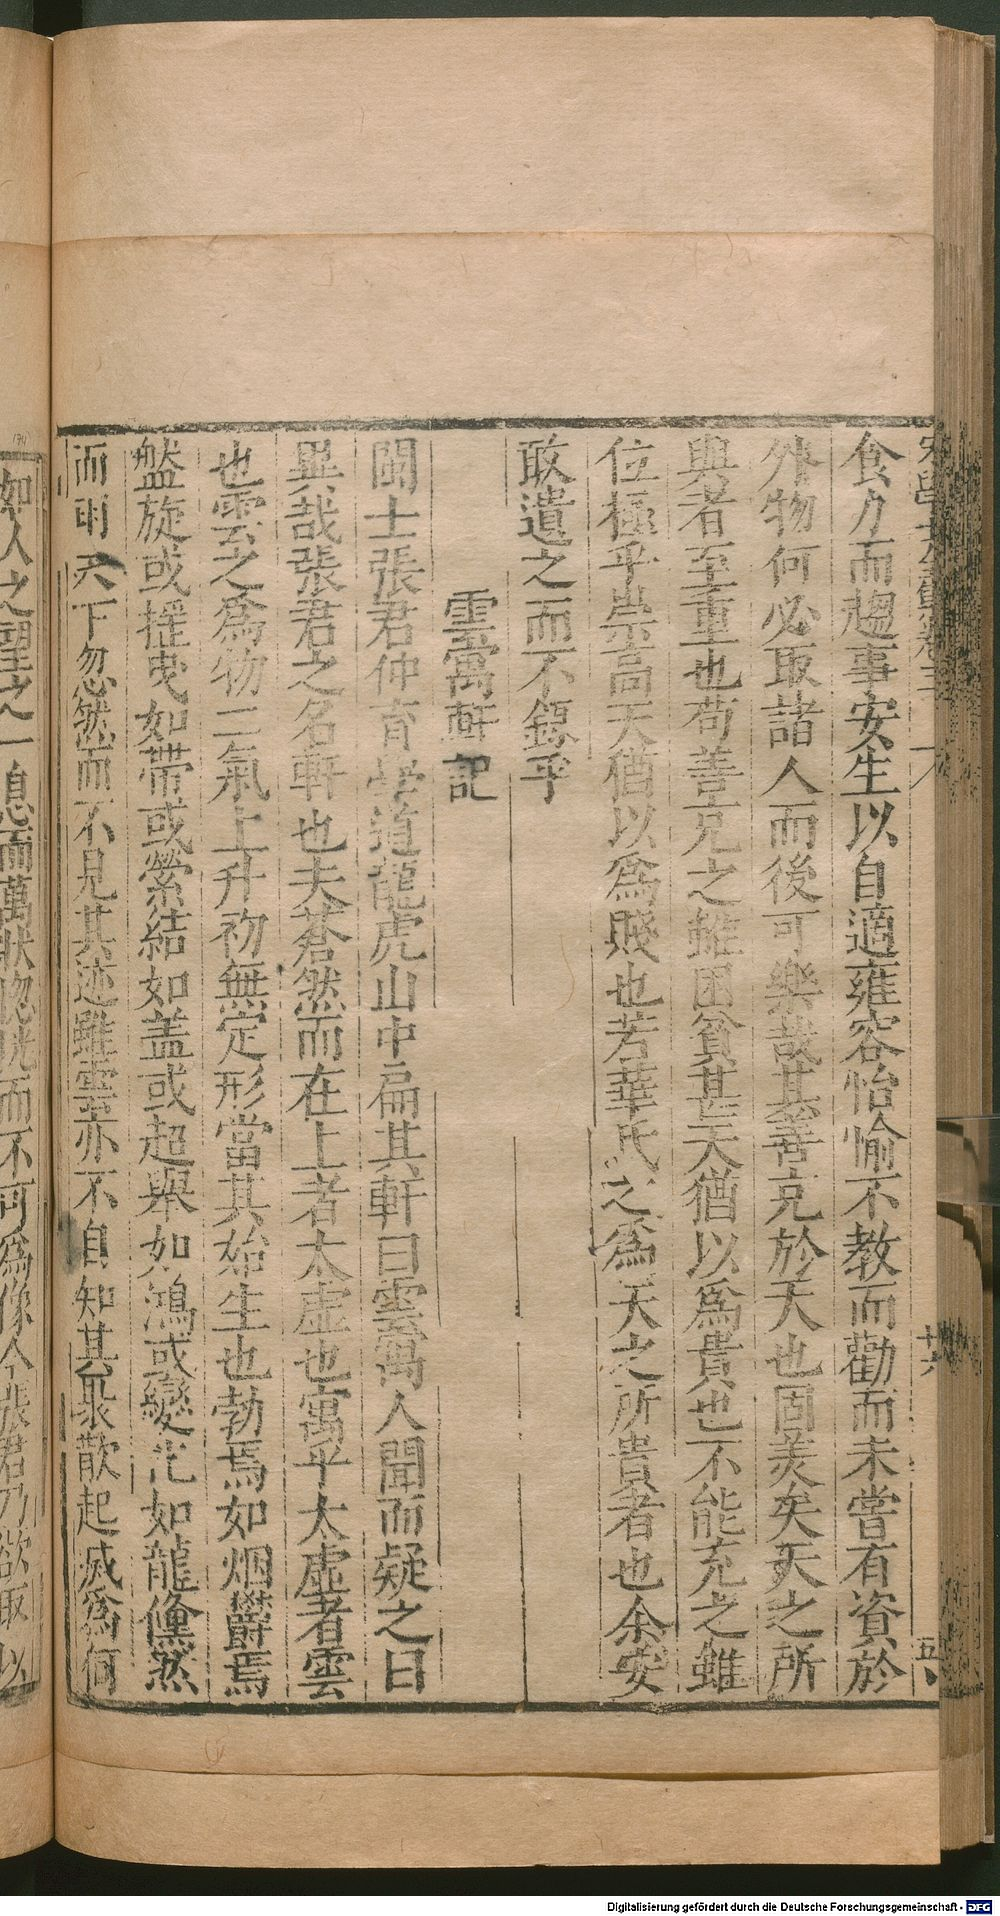 食力而趨事安生以自適雍容怡愉不教而勸而未嘗有資於
外物何必取諸人而後可樂哉其善克於天也固美矣天之所
與者至重也苟善充之雖困貧甚天猶以爲貴也不能充之雖
位極乎崇高天猶以爲賤也若華氏之爲天之所貴者也余安
敢遺之而不錄乎
雲寓軒記
閩士張君仲育學道龍虎山中扁其軒曰雲寓人聞而疑之曰
異哉張君之名軒也夫蒼然而在上者太虛也寓乎太虛者雲
也雲之爲物二氣上升初無定形當其始生也勃焉如烟欝焉
盤旋或搖曳如帶或縈結如蓋或超舉如鴻或變化如龍儵然
而雨天下忽然而不見其迹雖雲亦不自知其聚散起滅爲何
如人之望之一息而萬狀惚恍而不可爲像今張君乃欲取以
Digitalisierung gefördert durch die Deutsche Forschungsgemeinschaft - DFG